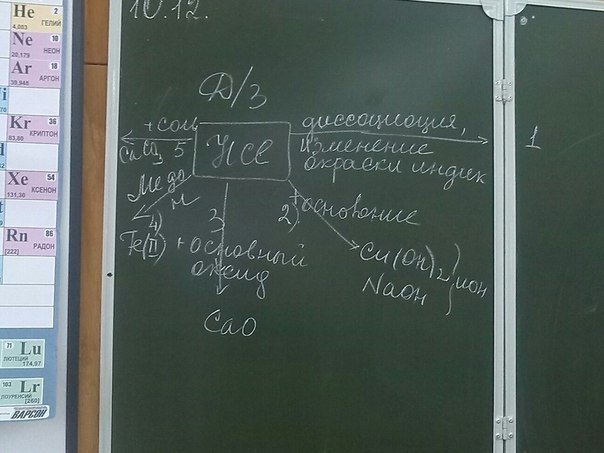 10.12.
Д/З
+ соль
CaCO3 5
HCl
диссоциация,
изменение
окраски индик
1
Me до
H
4)
Fe(II)
3)
+ основный
оксид
CaO
2)
+ основание
Cu(OH)2
NaOH
ион
He 2
4,003 ГЕЛИЙ
Ne 10
20,179 НЕОН
Ar 18
39,948 АРГОН
Kr 36
83,80 КРИПТОН
Xe 54
131,30 КСЕНОН
Rn 86
[222] РАДОН
71 Lu
ЛЮТЕЦИЙ 174,97
103 Lr
ЛОУРЕНСИЙ [260]
ВАРСОН